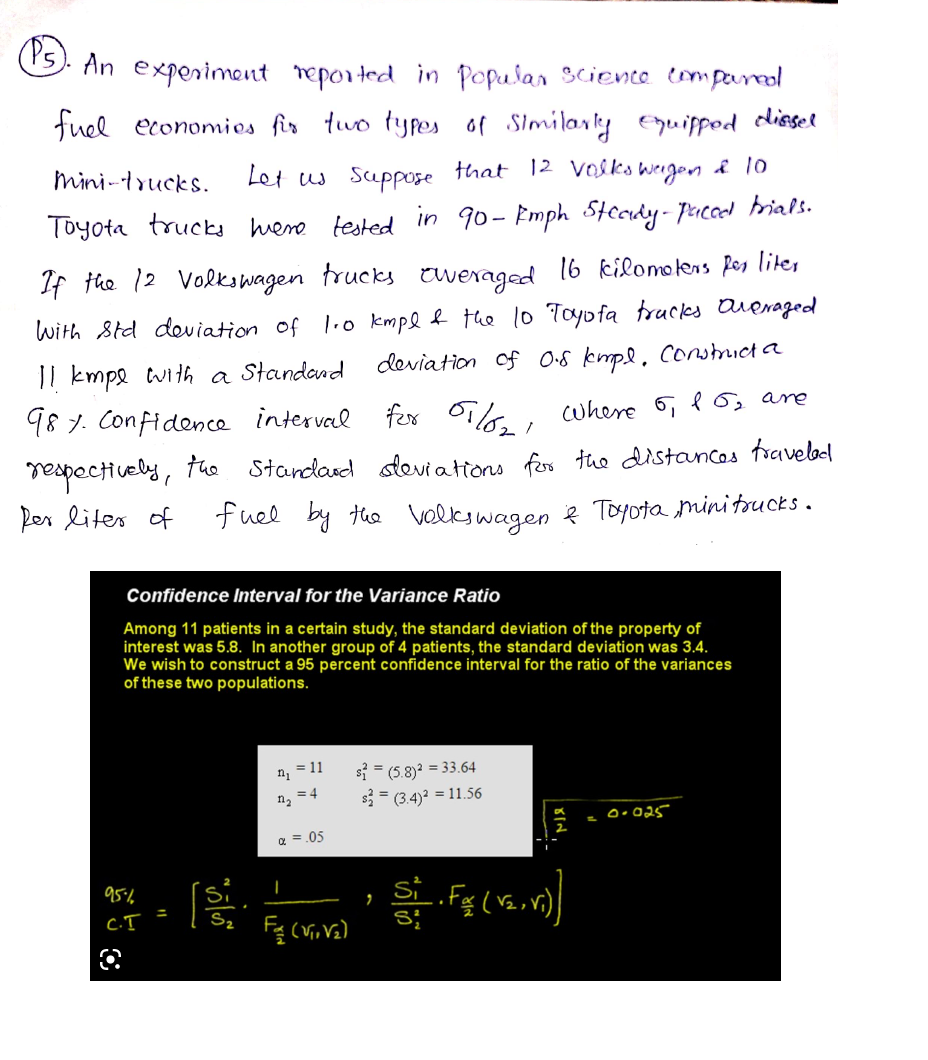 P5. An experiment reported in Popular Science compared
fuel economies for two types of similarly equipped diesel
mini-trucks. Let us suppose that 12 Volkswagen & 10
Toyota trucks were tested in 90-kmph steady-paced trials.
If the 12 Volkswagen trucks averaged 16 kilometers per liter
with std deviation of 1.0 kmpl & the 10 Toyota trucks averaged
11 kmpl with a standard deviation of 0.8 kmpl. Construct a
98 % Confidence interval for σ1/σ2, where σ1 & σ2 are
respectively, the standard deviations for the distances traveled
per liter of fuel by the Volkswagen & Toyota minitrucks.
Confidence Interval for the Variance Ratio
Among 11 patients in a certain study, the standard deviation of the property of
interest was 5.8. In another group of 4 patients, the standard deviation was 3.4.
We wish to construct a 95 percent confidence interval for the ratio of the variances
of these two populations.
n₁ = 11 s₁² = (5.8)² = 33.64
n₂ = 4 s₂² = (3.4)² = 11.56
α = .05
α/2 = 0.025
95% C.I = [S₁²/S₂ · 1/F α/2 (V₁, V₂) , S₁²/S₂² · F α/2 (V₂, V₁)]